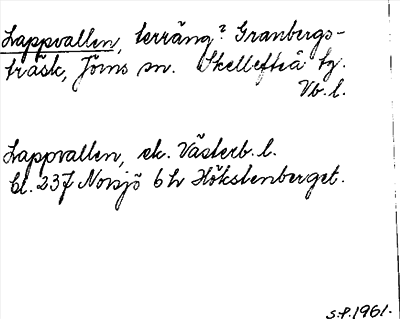 Lappvallen, terräng? Granbergs-
träsk, Jörns sn. Skellefteå tg.
Vb. l.
Lappvallen, ek. Västerb. l.
bl. 237 Norsjö 6 h Hökstenberget.
S.P. 1961.